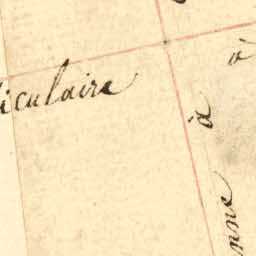 iculaire
à
à
nne